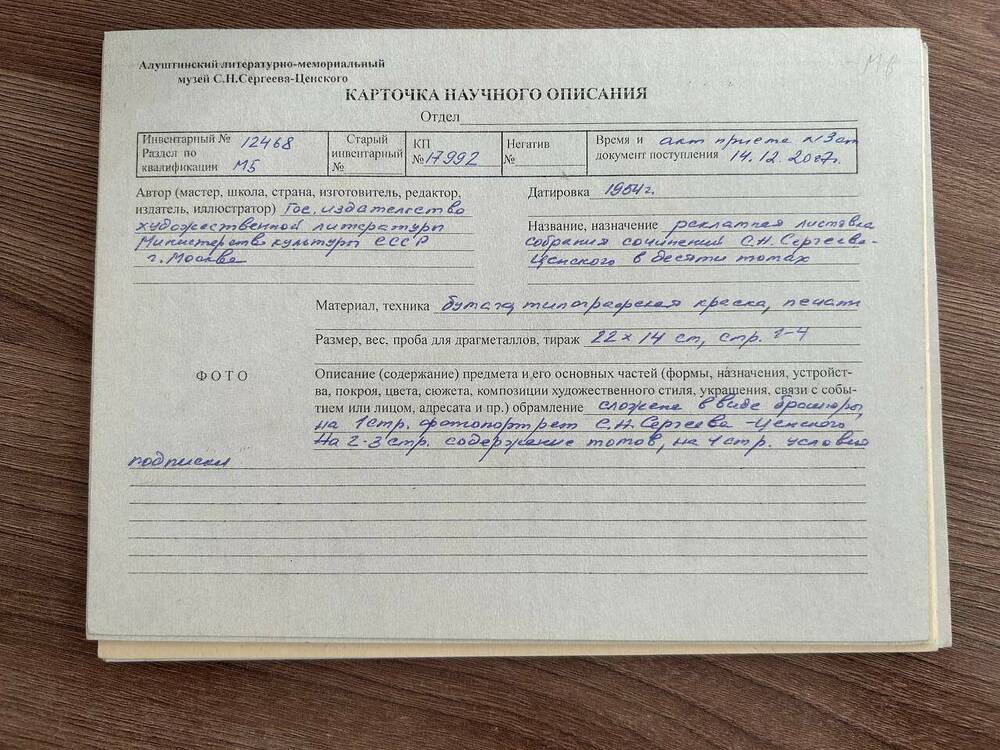 Алуштинский литературно-мемориальный
музей С.Н.Сергеева-Ценского
КАРТОЧКА НАУЧНОГО ОПИСАНИЯ
Отдел
Инвентарный № 12468
Раздел по
квалификации М5
Старый
инвентарный
№
КП
№ 17992
Негатив
№
Время и акт приема №3 от
документ поступления 14.12.2007г.
Автор (мастер, школа, страна, изготовитель, редактор,
издатель, иллюстратор) Гос. издательство
художественной литературы
Министерство культуры СССР
г. Москва
Датировка 1954г.
Название, назначение рекламная листовка
собрания сочинений С.Н. Сергеева-
Ценского в десяти томах
Материал, техника бумага, типографская краска, печать
Размер, вес, проба для драгметаллов, тираж 22 × 14 см, стр. 1-4
ФОТО
Описание (содержание) предмета и его основных частей (формы, назначения, устройст-
ва, покроя, цвета, сюжета, композиции художественного стиля, украшения, связи с собы-
тием или лицом, адресата и пр.) обрамление сложена в виде брошюры,
на 1 стр. фотопортрет С.Н. Сергеева-Ценского
На 2-3 стр. содержание томов, на 4 стр. условия
подписки